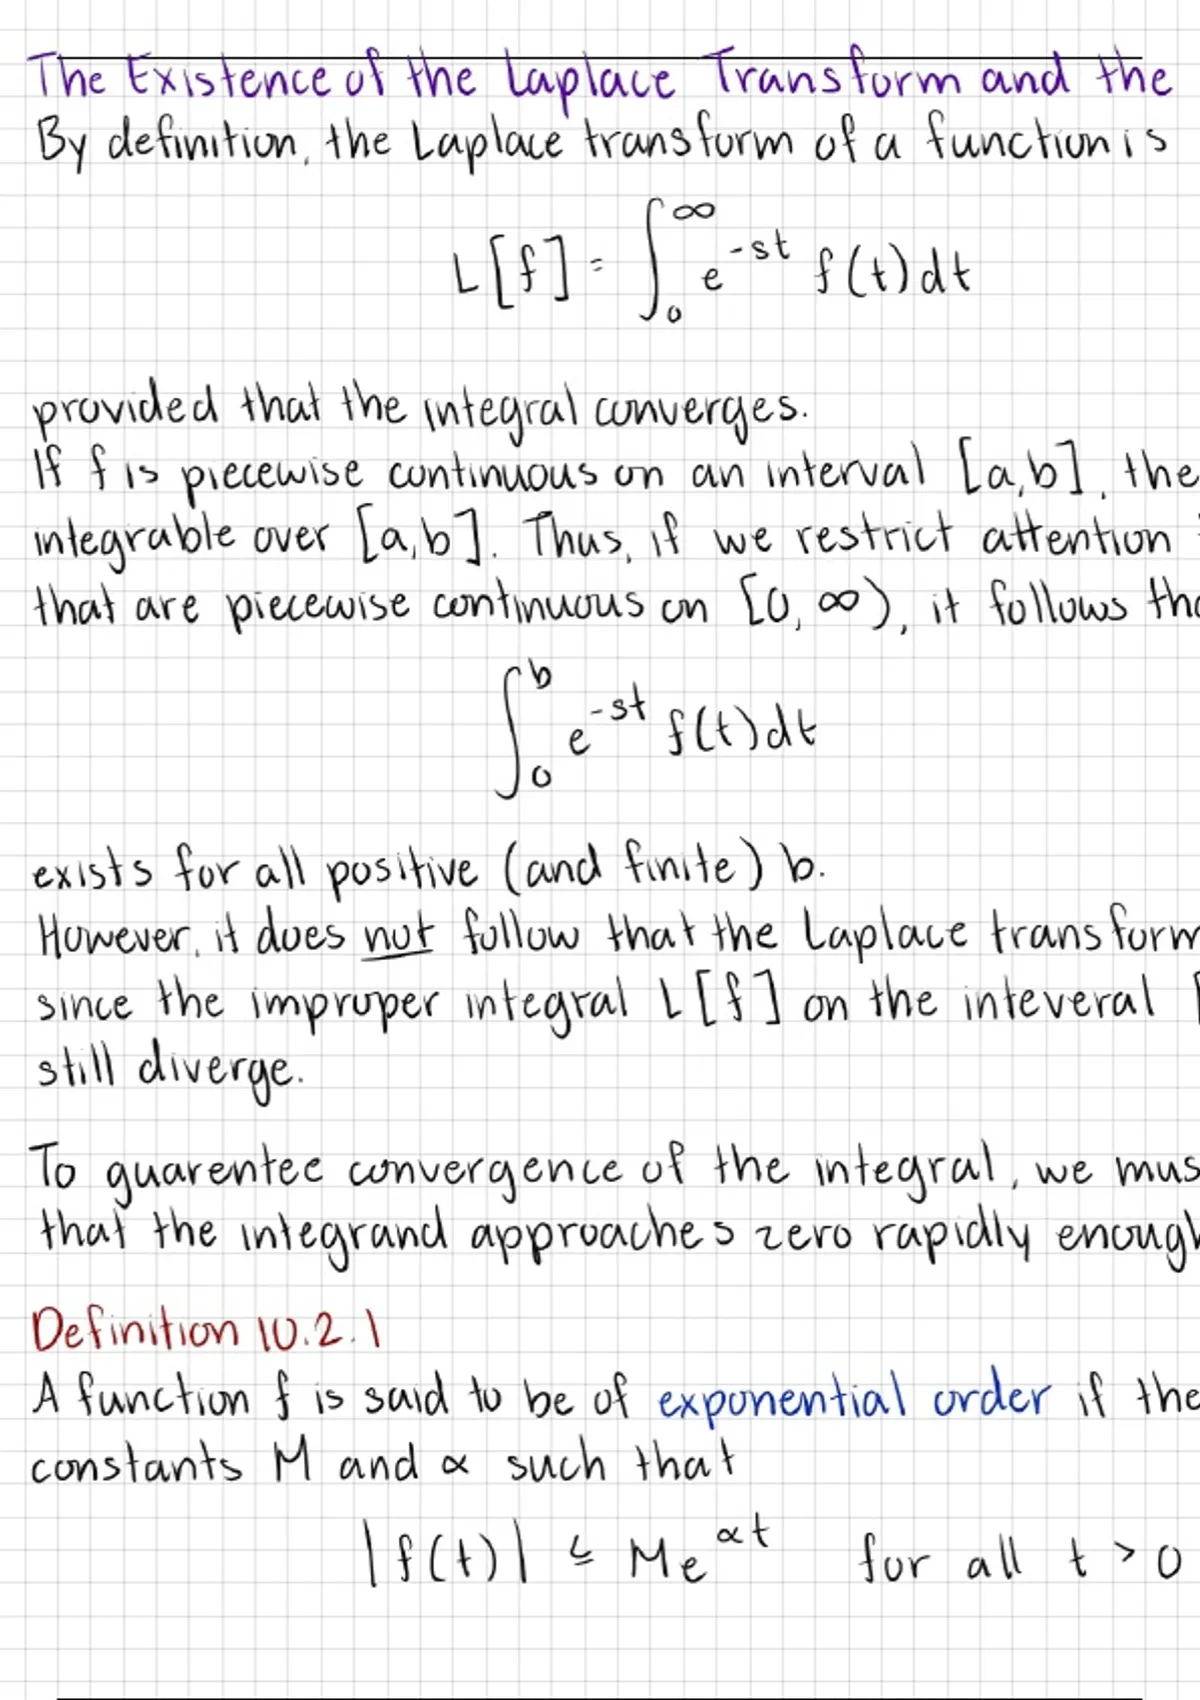 The Existence of the Laplace Transform and the
By definition, the Laplace transform of a function is
L[f] = ∫₀^∞ e^{-st} f(t)dt
provided that the integral converges.
If f is piecewise continuous on an interval [a,b], the
integrable over [a,b]. Thus, if we restrict attention
that are piecewise continuous on [0, ∞), it follows tha
∫₀^b e^{-st} f(t)dt
exists for all positive (and finite) b.
However, it does not follow that the Laplace transform
since the improper integral L[f] on the inteveral [
still diverge.
To guarentee convergence of the integral, we mus
that the integrand approaches zero rapidly enough
Definition 10.2.1
A function f is said to be of exponential order if the
constants M and α such that
|f(t)| ≤ Me^{αt} for all t > 0